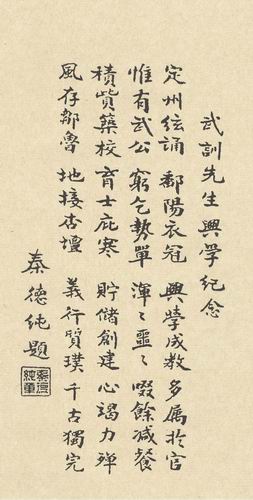 武訓先生興學紀念
定州絃誦 鄱陽衣冠 興學成教 多属於官
惟有武公 窮乞勢單 渾渾噩噩 啜餘減餐
積貲築校 育士庇寒 貯儲創建 心竭力殫
風存鄒魯 地接杏壇 義行質璞 千古獨完
秦德純題
秦德純章